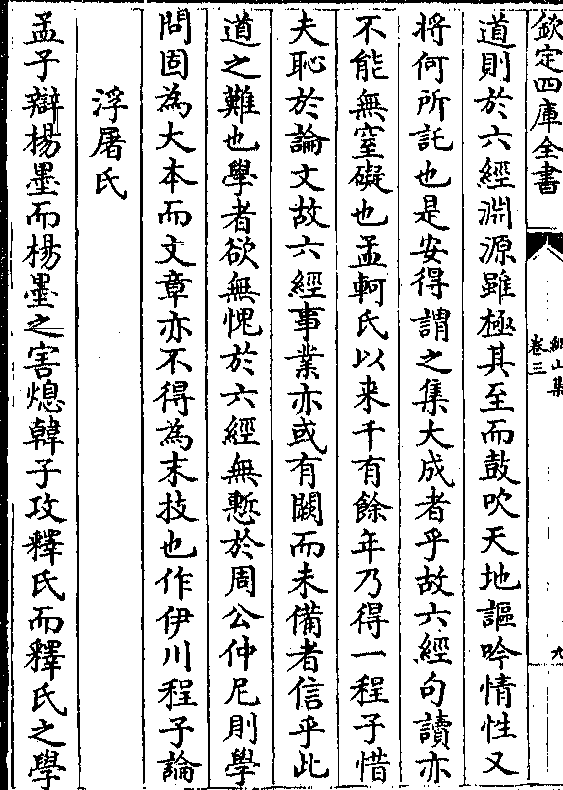 欽定四庫全書
網山集
卷三
九
道則於六經淵源雖極其至而鼓吹天地謳吟情性又
將何所託也是安得謂之集大成者乎故六經句讀亦
不能無窒礙也孟軻氏以来千有餘年乃得一程子惜
夫恥於論文故六經事業亦或有闕而未備者信乎此
道之難也學者欲無愧於六經無慙於周公仲尼則學
問固為大本而文章亦不得為末技也作伊川程子論
浮屠氏
孟子辯楊墨而楊墨之害熄韓子攻釋氏而釋氏之學